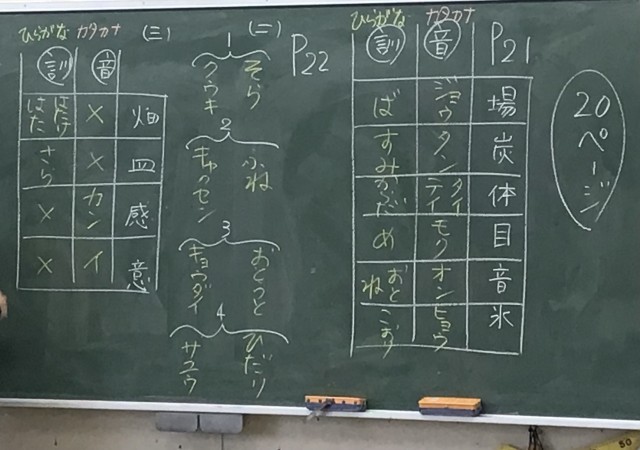 20ページ
P21
音 カタカナ
訓 ひらがな
場 ジョウ ば
炭 タン すみ
体 タイ テイ からだ
目 モク め
音 オン おと ね
氷 ヒョウ こおり
P22
(二)
1 そら クウキ
2 ふね キャクセン
3 おとうと キョウダイ
4 ひだり サユウ
(三)
音 カタカナ
訓 ひらがな
畑 × はたけ はた
皿 × さら
感 カン ×
意 イ ×
50